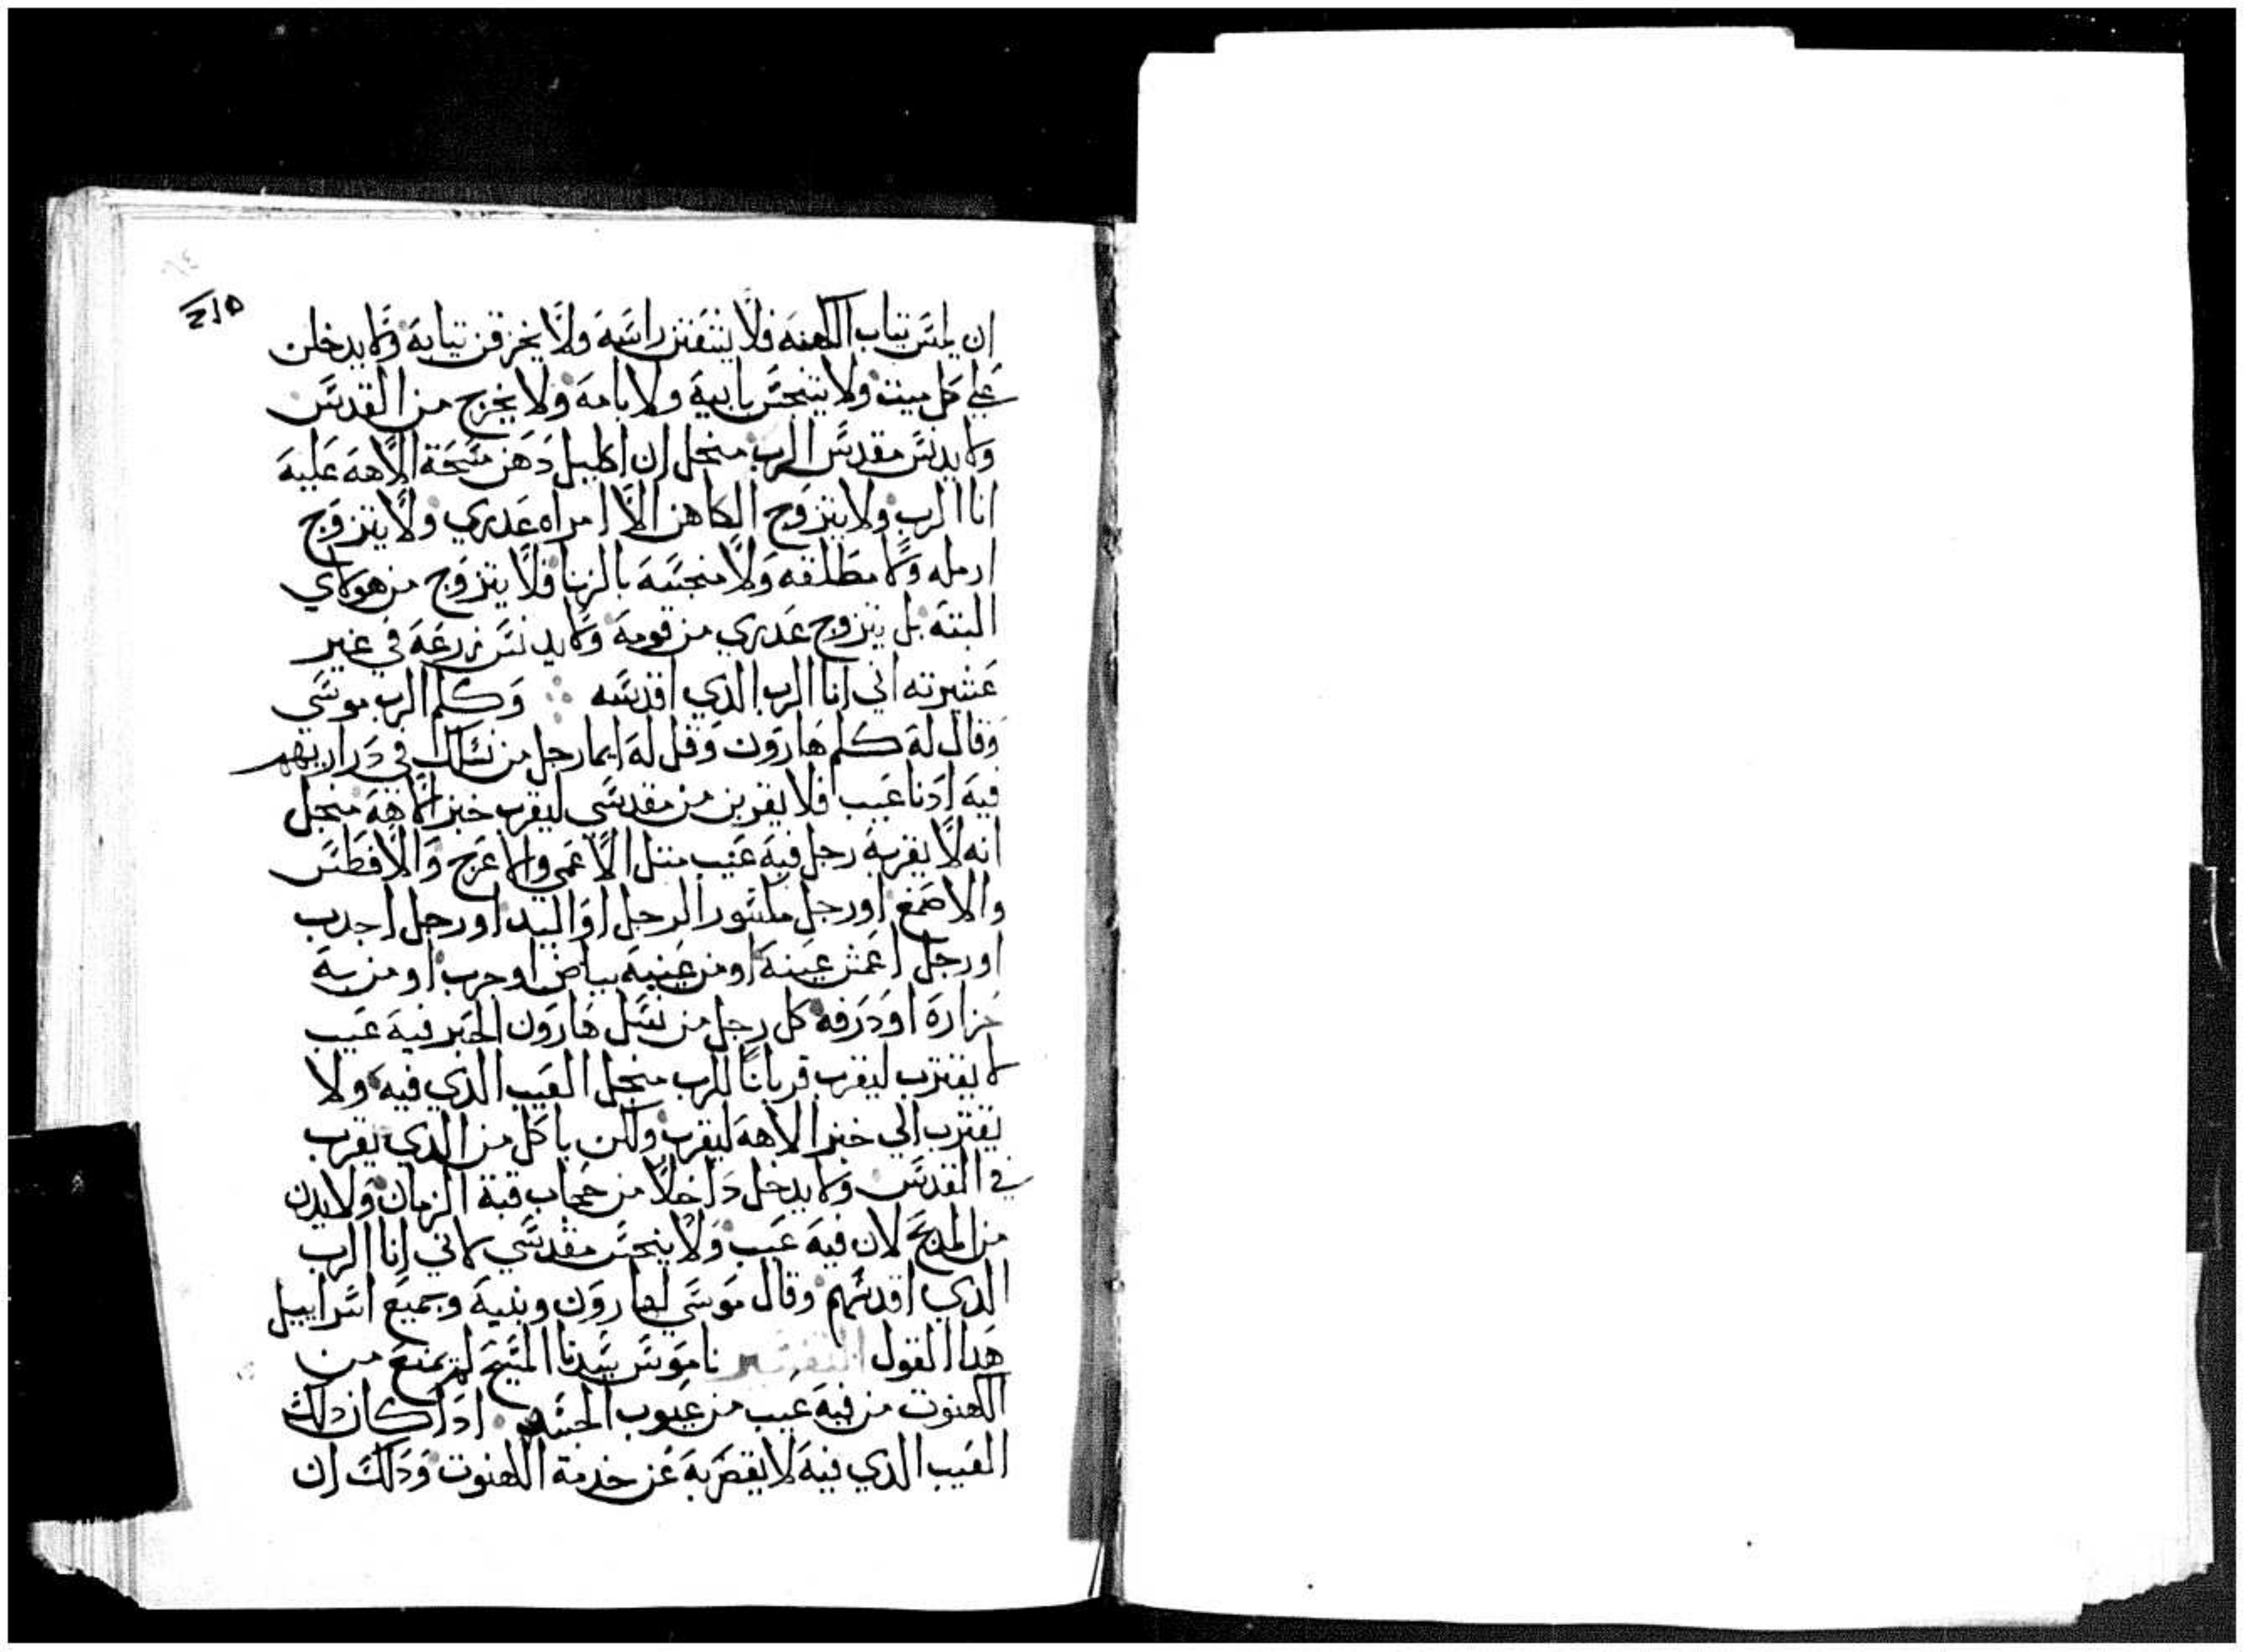 ان يلبس تياب الكهنه فلا يشفتن راسه ولا يخرقن تيابه ولا يدخلن
علي كل ميت ولا يتنجس بابيه ولا بامه ولا يخرج من القدس
ولا يدنس مقدس الرب منجل ان اكليل دهن مسحة الاهه عليه
انا الرب ولا يتزوج الكاهن الا امراه عدري ولا يتزوج
ارمله ولا مطلقه ولا منجسه بالزنا فلا يتزوج من هولاي
البته بل يتزوج عدري من قومه ولا يدنس زرعه في غير
عشيرته اني انا الرب الدي اقدسه وكلم الرب موسي
وقال له كلم هارون وقل له ايما رجل من نسلك في دراريهم
فيه ادنا عيب فلا يقربن من مقدسي ليقرب خبز الاهه منجل
انه لا يقربه رجل فيه عيب متل الاعمي والاعرج والافطس
والاصمع او رجل مكسور الرجل او اليد او رجل احدب
او رجل اعمش عينه او من عينيه بياض او جرب او من به
حزازه او درفه كل رجل من نسل هارون الحبر فيه عيب
لا يقترب ليقرب قربانا للرب منجل العيب الدي فيه ولا
يقترب الي خبز الاهه ليقرب ولكن ياكل من الدي يقرب
في القدس ولا يدخل داخلا من حجاب قبة الزمان ولا يدن
من المدبح لان فيه عيب ولا ينجس مقدسي لاني انا الرب
الدي اقدسهم وقال موسي لهارون وبنيه وجميع اسراييل
هدا القول التفسير ناموس سيدنا المسيح لم يمنع من
الكهنوت من فيه عيب من عيوب الجسم ادا كان دلك
العيب الدي فيه لا يقصر به عن خدمة الكهنوت ودلك ان